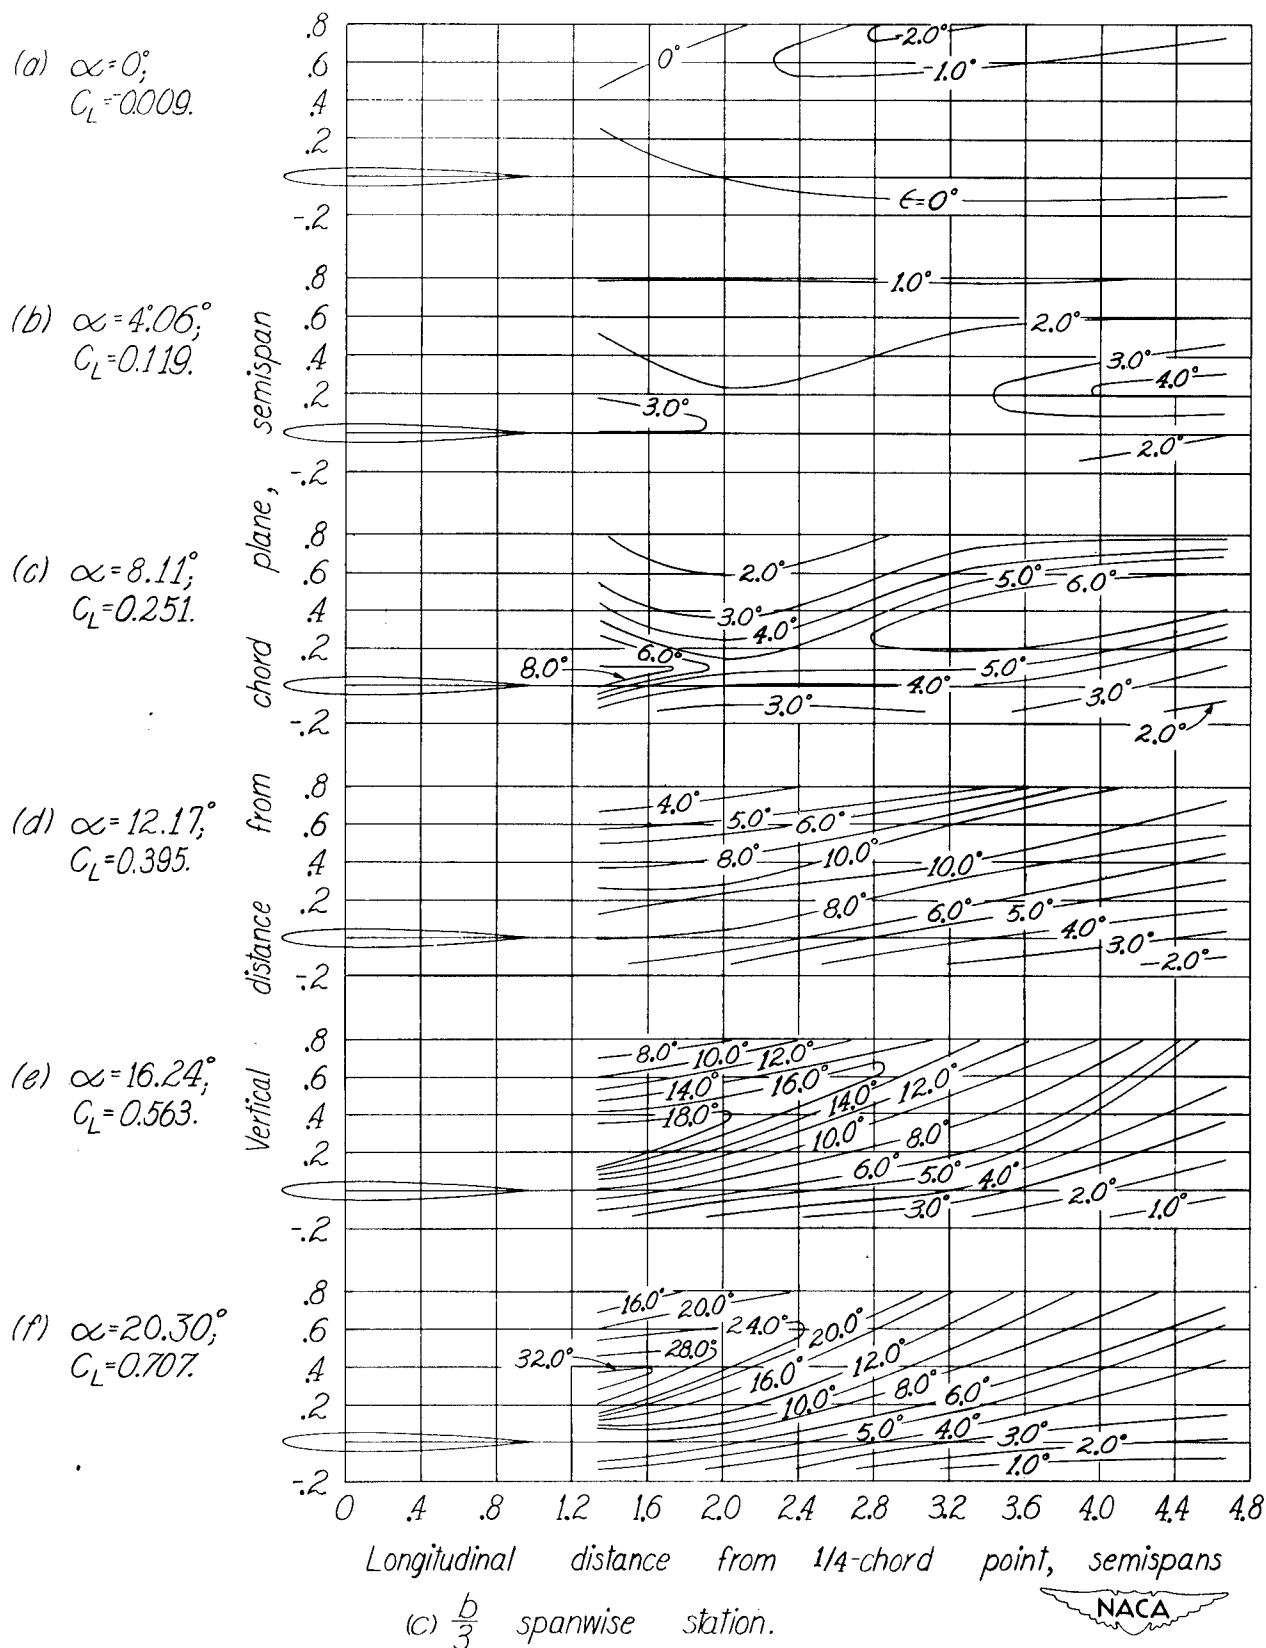 (a) α=0°;
C_L=-0.009.
.8
.6
.4
.2
-.2
0°
-2.0°
-1.0°
ϵ=0°
(b) α=4.06°;
C_L=0.119.
.8
.6
.4
.2
-.2
1.0°
2.0°
3.0°
4.0°
3.0°
2.0°
(c) α=8.11°;
C_L=0.251.
.8
.6
.4
.2
-.2
2.0°
5.0°
6.0°
3.0°
4.0°
6.0°
8.0°
5.0°
4.0°
3.0°
3.0°
2.0°
(d) α=12.17°;
C_L=0.395.
.8
.6
.4
.2
-.2
4.0°
5.0°
6.0°
8.0°
10.0°
10.0°
8.0°
6.0°
5.0°
4.0°
3.0°
2.0°
(e) α=16.24°;
C_L=0.563.
.8
.6
.4
.2
-.2
8.0°
10.0°
12.0°
14.0°
16.0°
12.0°
18.0°
14.0°
10.0°
8.0°
6.0°
5.0°
4.0°
3.0°
2.0°
1.0°
(f) α=20.30°;
C_L=0.707.
.8
.6
.4
.2
-.2
16.0°
20.0°
24.0°
20.0°
28.0°
32.0°
16.0°
12.0°
10.0°
8.0°
6.0°
5.0°
4.0°
3.0°
2.0°
1.0°
Vertical distance from chord plane, semispan
0 .4 .8 1.2 1.6 2.0 2.4 2.8 3.2 3.6 4.0 4.4 4.8
Longitudinal distance from 1/4-chord point, semispans
(c) b/3 spanwise station.
NACA